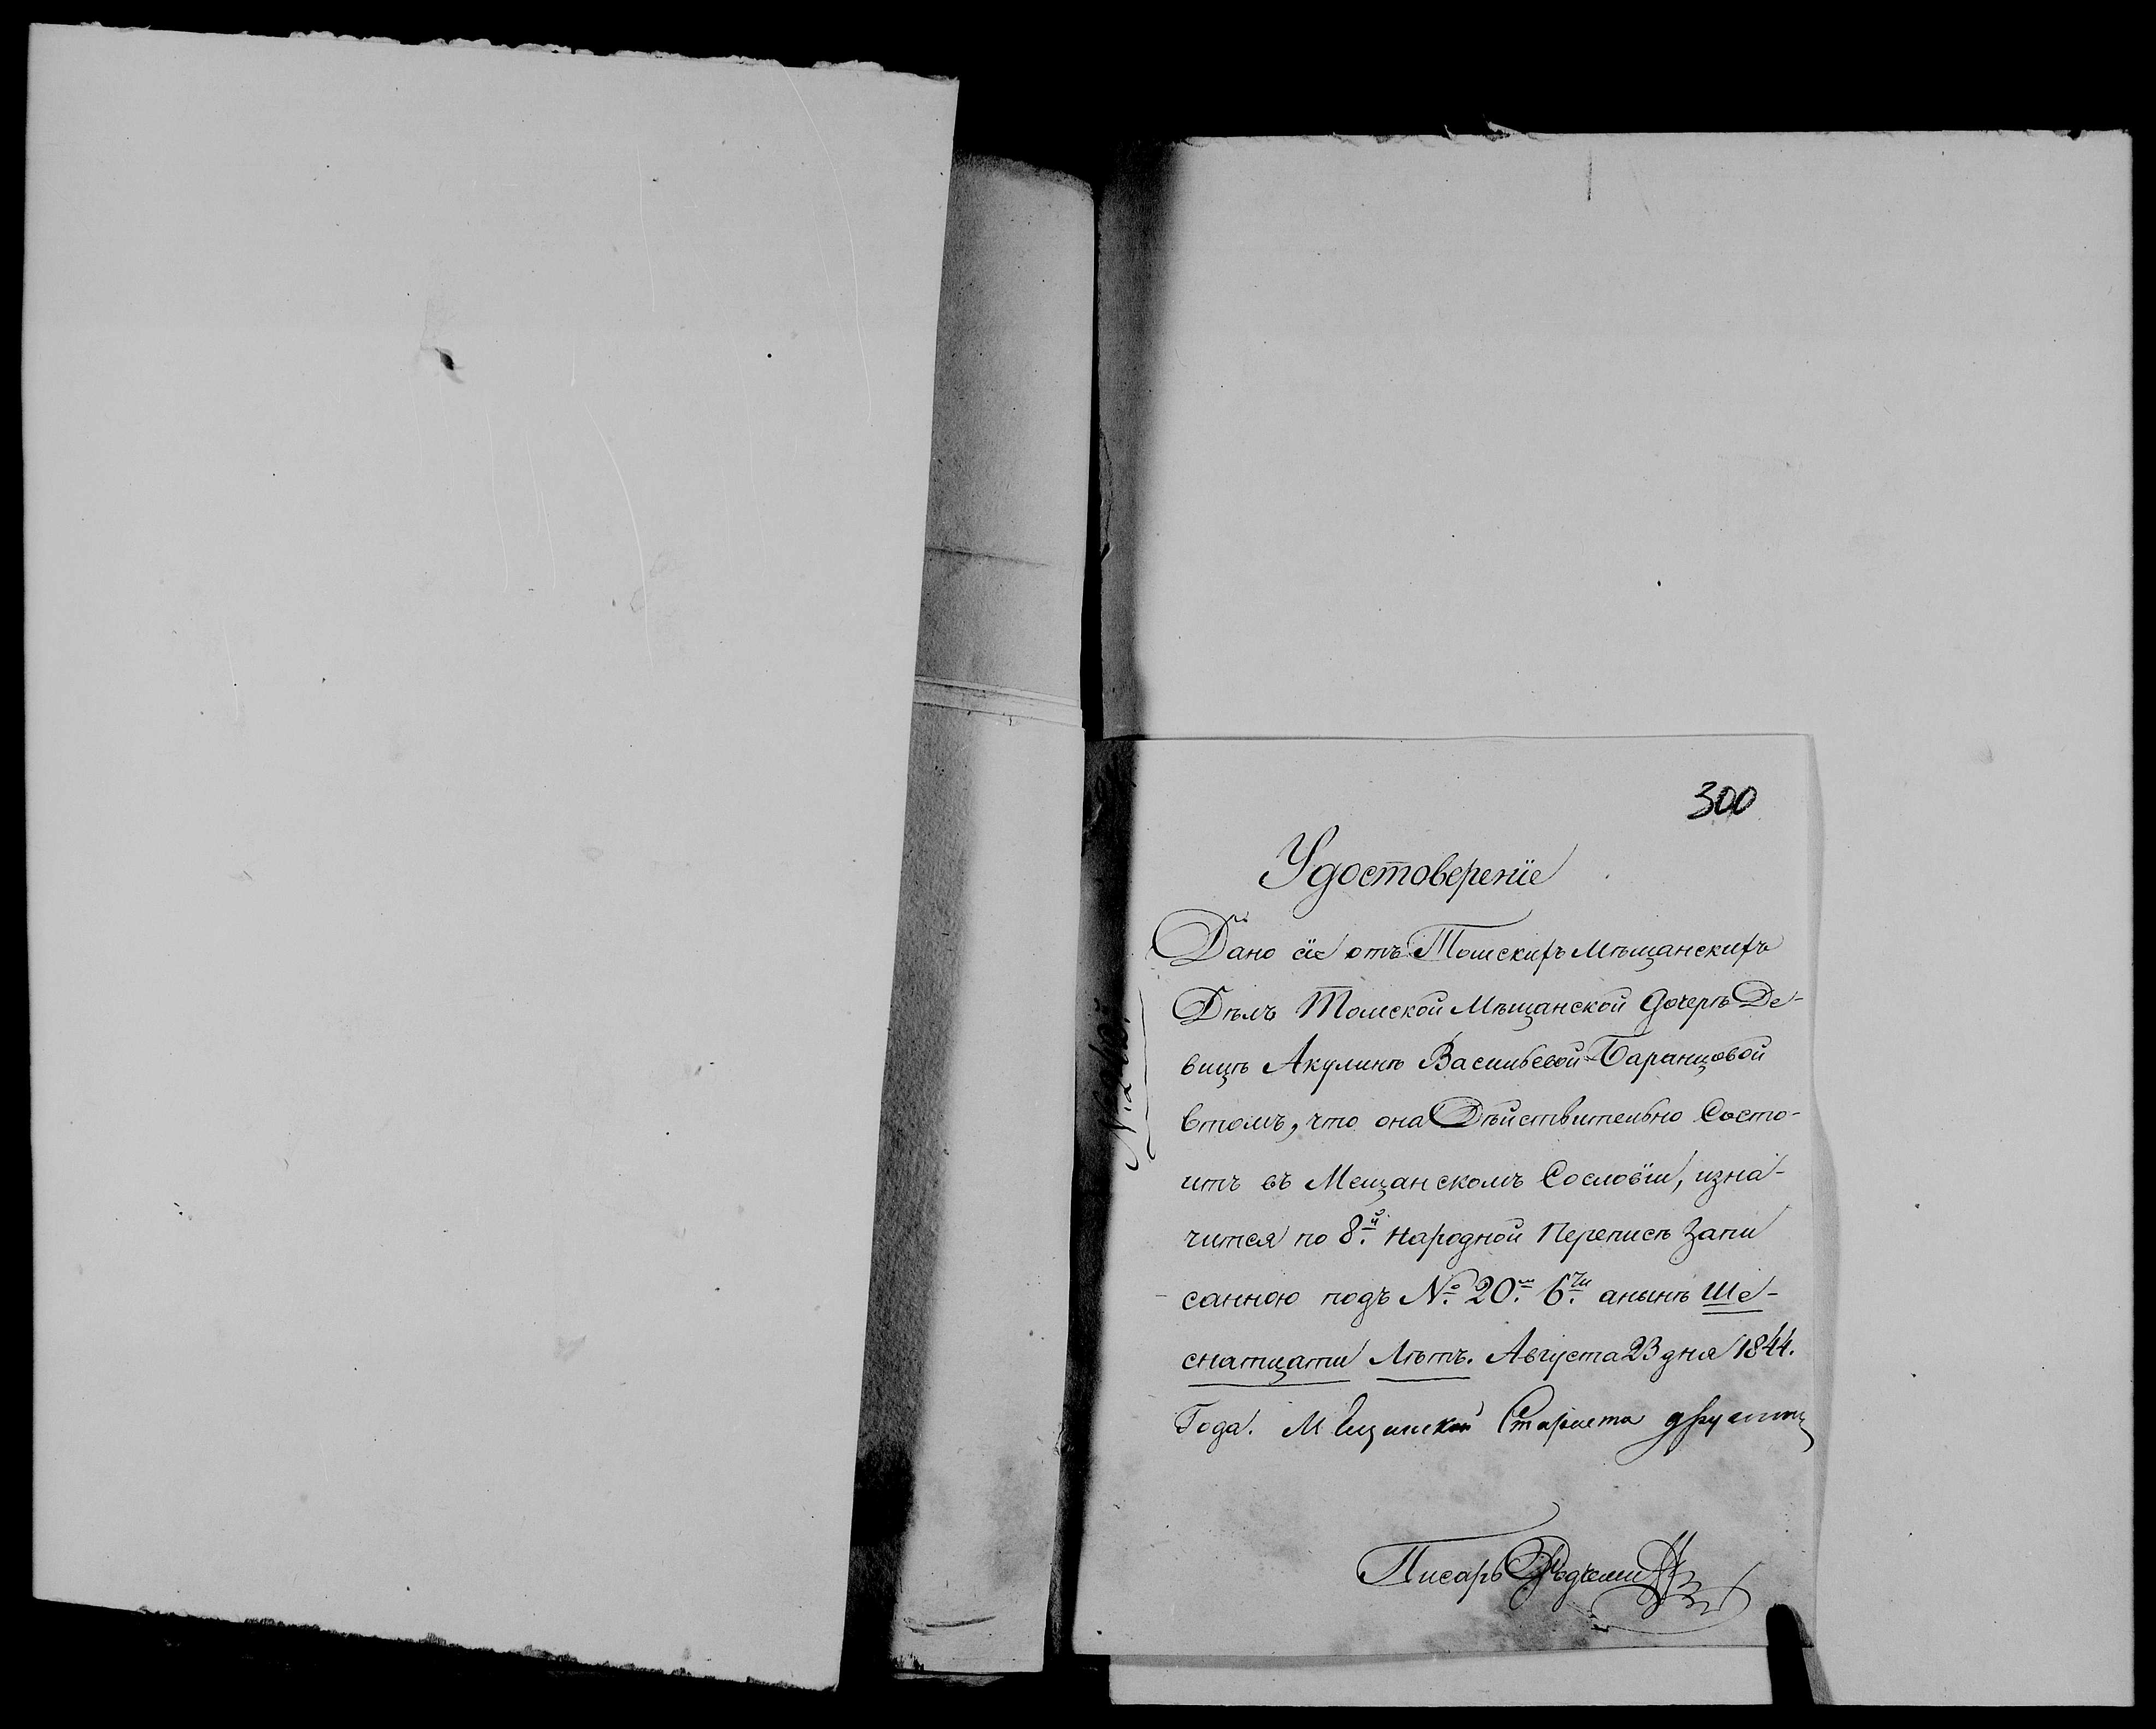 300
Удостоверенїе
Дано сїе отъ Томскихъ Мѣщанскихъ
Дѣлъ Томской Мѣщанской дочерѣ Де-
вицѣ Акулинѣ Васильевой Баранцовой
втомъ, что она Дѣйствительно Состо-
итъ въ Мещанскомъ Сословїи, изна-
чится по 8й. Народной Переписѣ Запи
санною подъ №. 20м. 6ти. анынѣ Ше-
снатцати Лѣтъ. Августа 23 дня 1844.
Года. Мещинской Стариста
Писарь